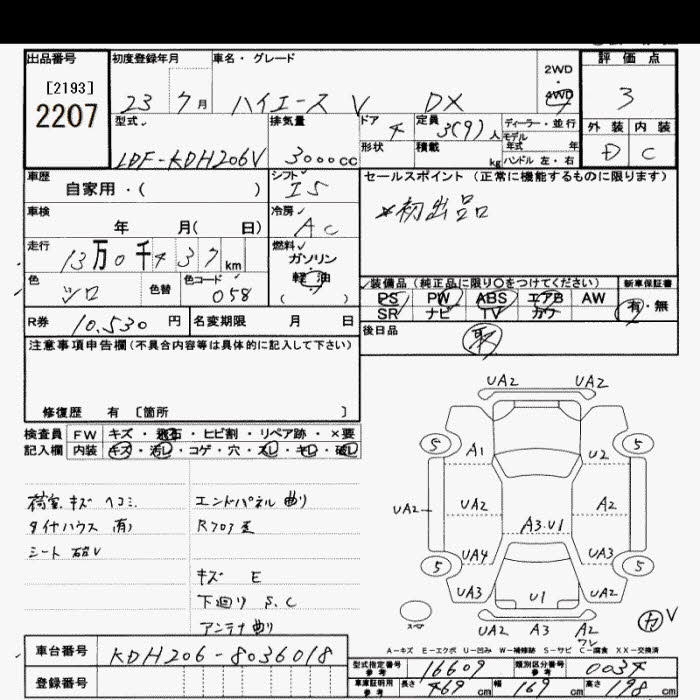 出品番号
[2193]
2207
初度登録年月
23 7月
車名・グレード
ハイエース V DX
2WD
4WD
評価点
3
外装 内装
D C
型式
LDF-KDH206V
排気量
3000cc
ドア
4
定員
3(9)人
ディーラー・並行
モデル
年式 年
形状
積載
kg
ハンドル 左・右
車歴
自家用・( )
シフト
I5
セールスポイント(正常に機能するものに限ります)
※初出品
車検
年 月( 日)
冷房
AC
走行
13万0千437km
燃料
ガソリン
軽油
( )
色
シロ
色替
色コード
058
装備品(純正品に限り○をつけてください)
PS PW ABS エアB AW
SR ナビ TV カワ
新車保証書
有・無
R券
10,530円
名変期限 月 日
後日品
取
注意事項申告欄(不具合内容等は具体的に記入して下さい)
修復歴 有 〔箇所 〕
検査員 FW キズ・飛石・ヒビ割・リペア跡・×要
記入欄 内装 キズ・汚レ・コゲ・穴・スレ・キレ・破レ
荷室キズ ヘコミ
タイヤハウス 有)
シート 破レ
エンドパネル曲り
キズ E
下回り S.C
アンテナ曲り
UA2 UA2
5 5
A1 U2
UA2 UA2 A2
A3.U1
UA4 UA3
5 5
UA3 U1 UA2
スペア
UA2 A3 A2
カ V
A−キズ E−エクボ U−凹み W−補修跡 S−サビ C−腐食 XX−交換済
車台番号
KDH206-8036018
登録番号
型式指定番号
参考
16609
類別区分番号
参考
0034
車庫証明用
参考
長さ 469cm
幅 169cm
高さ 198cm